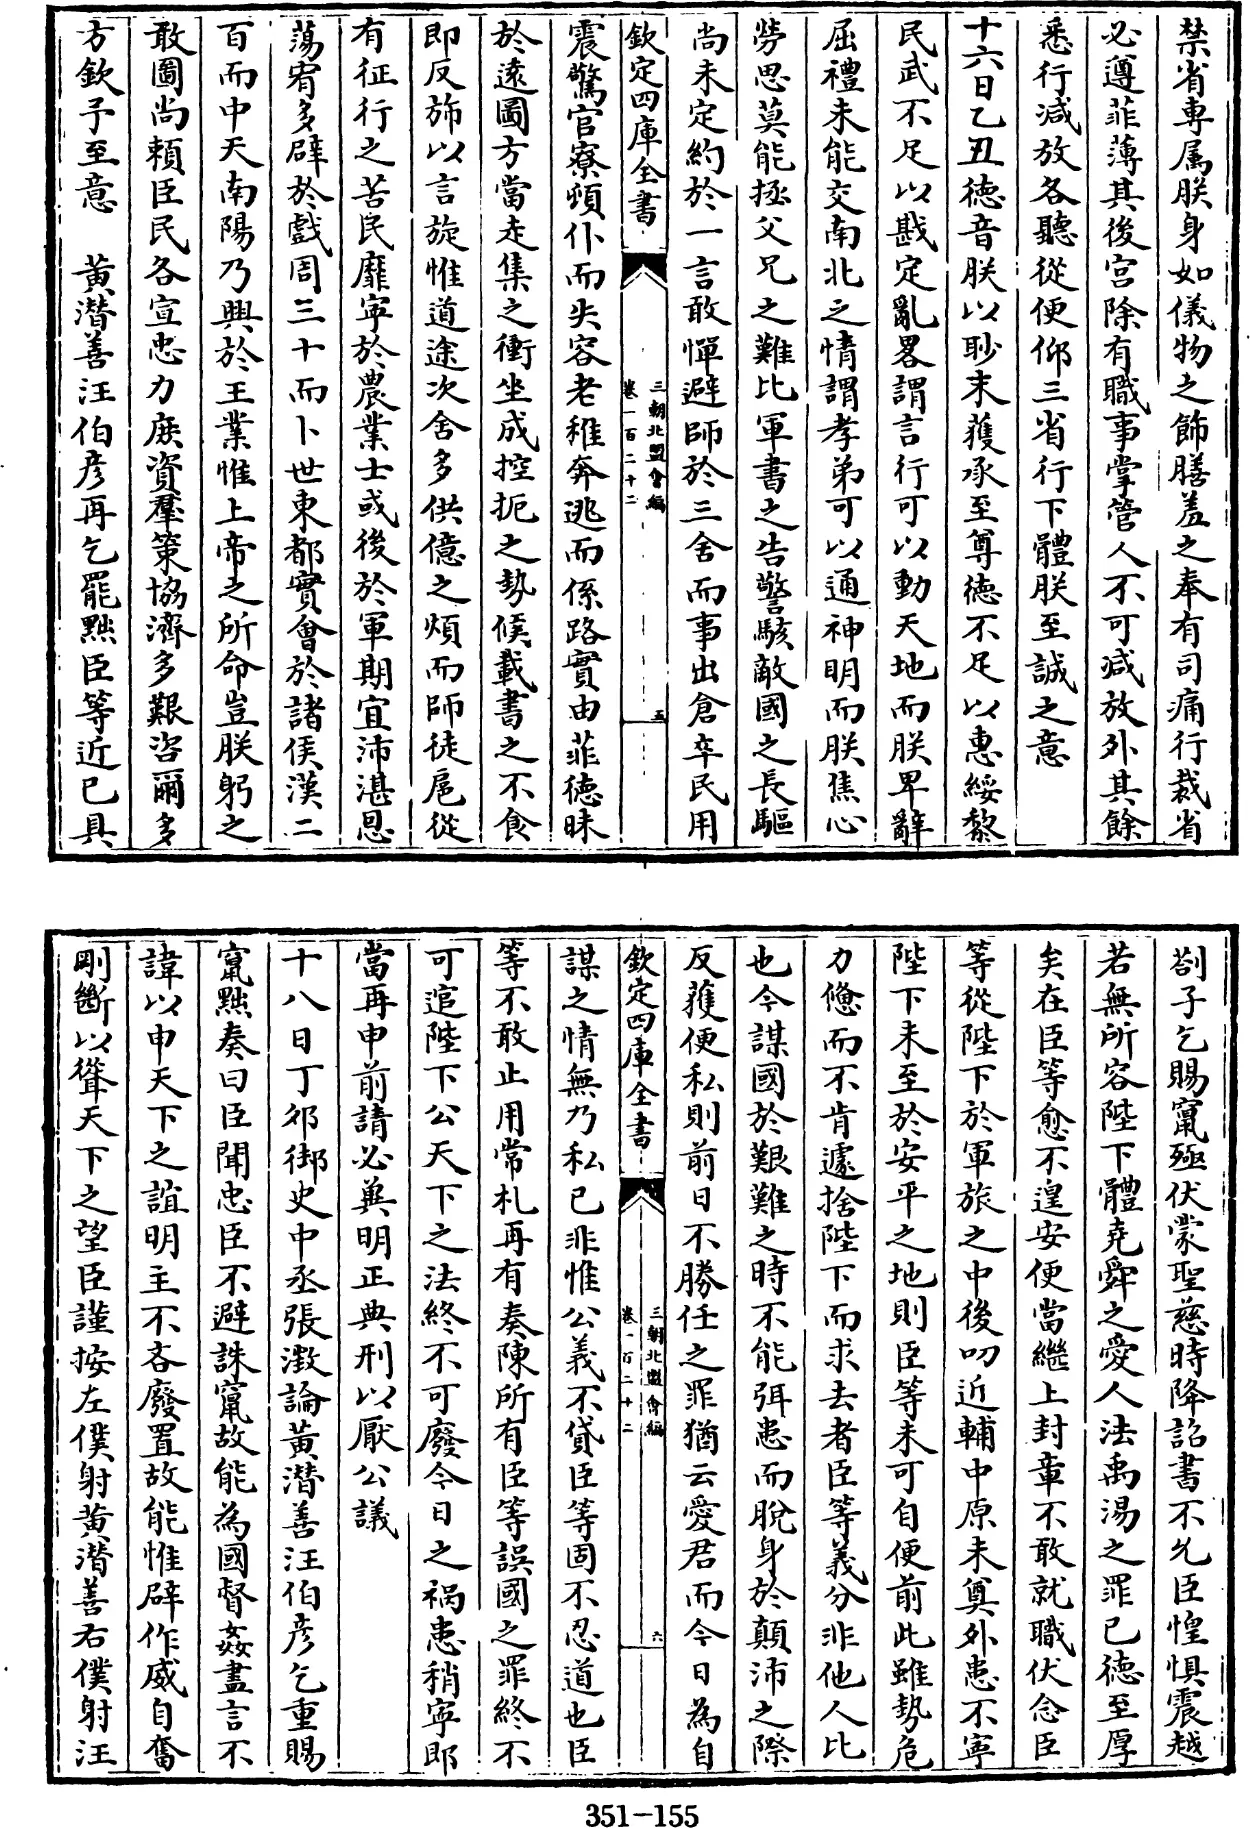 禁省専属朕身如儀物之飾膳羞之奉有司痛行裁省
必遵菲薄其後宮除有職事掌管人不可减放外其餘
悉行减放各聽從便仰三省行下體朕至誠之意
十六日乙丑徳音朕以眇末獲承至尊徳不足以惠綏黎
民武不足以戡定亂畧謂言行可以動天地而朕卑辭
屈禮未能交南北之情謂孝弟可以通神明而朕焦心
勞思莫能拯父兄之難比軍書之告警駭敵國之長驅
尚未定約於一言敢憚避師於三舍而事出倉卒民用
欽定四庫全書
三朝北盟會編
卷一百二十二
五
震驚官寮頓仆而失容老稚奔逃而係路實由菲徳昧
於逺圖方當走集之衝坐成控扼之勢倐載書之不食
即反斾以言旋惟道途次舍多供億之煩而師徒扈從
有征行之苦民靡寧於農業士或後於軍期宜沛湛恩
蕩宥多辟於戲周三十而卜世東都實會於諸侯漢二
百而中天南陽乃興於王業惟上帝之所命豈朕躬之
敢圖尚頼臣民各宣忠力庶資羣策協濟多艱咨爾多
方欽予至意　黄潛善汪伯彦再乞罷黜臣等近已具
劄子乞賜竄殛伏蒙聖慈時降詔書不允臣惶惧震越
若無所容陛下體堯舜之愛人法禹湯之罪已德至厚
矣在臣等愈不遑安便當繼上封章不敢就職伏念臣
等從陛下於軍旅之中後叨近輔中原未奠外患不寧
陛下未至於安平之地則臣等未可自便前此雖勢危
力憊而不肯遽捨陛下而求去者臣等義分非他人比
也今謀國於艱難之時不能弭患而脫身於顛沛之際
反獲便私則前日不勝任之罪猶云愛君而今日為自
欽定四庫全書
三朝北盟會編
卷一百二十二
六
謀之情無乃私已非惟公義不貸臣等固不忍道也臣
等不敢止用常札再有奏陳所有臣等誤國之罪終不
可逭陛下公天下之法終不可廢今日之禍患稍寧即
當再申前請必冀明正典刑以厭公議
十八日丁夘御史中丞張澂論黄潛善汪伯彦乞重賜
竄黜奏曰臣聞忠臣不避誅竄故能為國督姦盡言不
諱以申天下之誼明主不吝廢置故能惟辟作威自奮
剛斷以聳天下之望臣謹按左僕射黄潛善右僕射汪
351-155